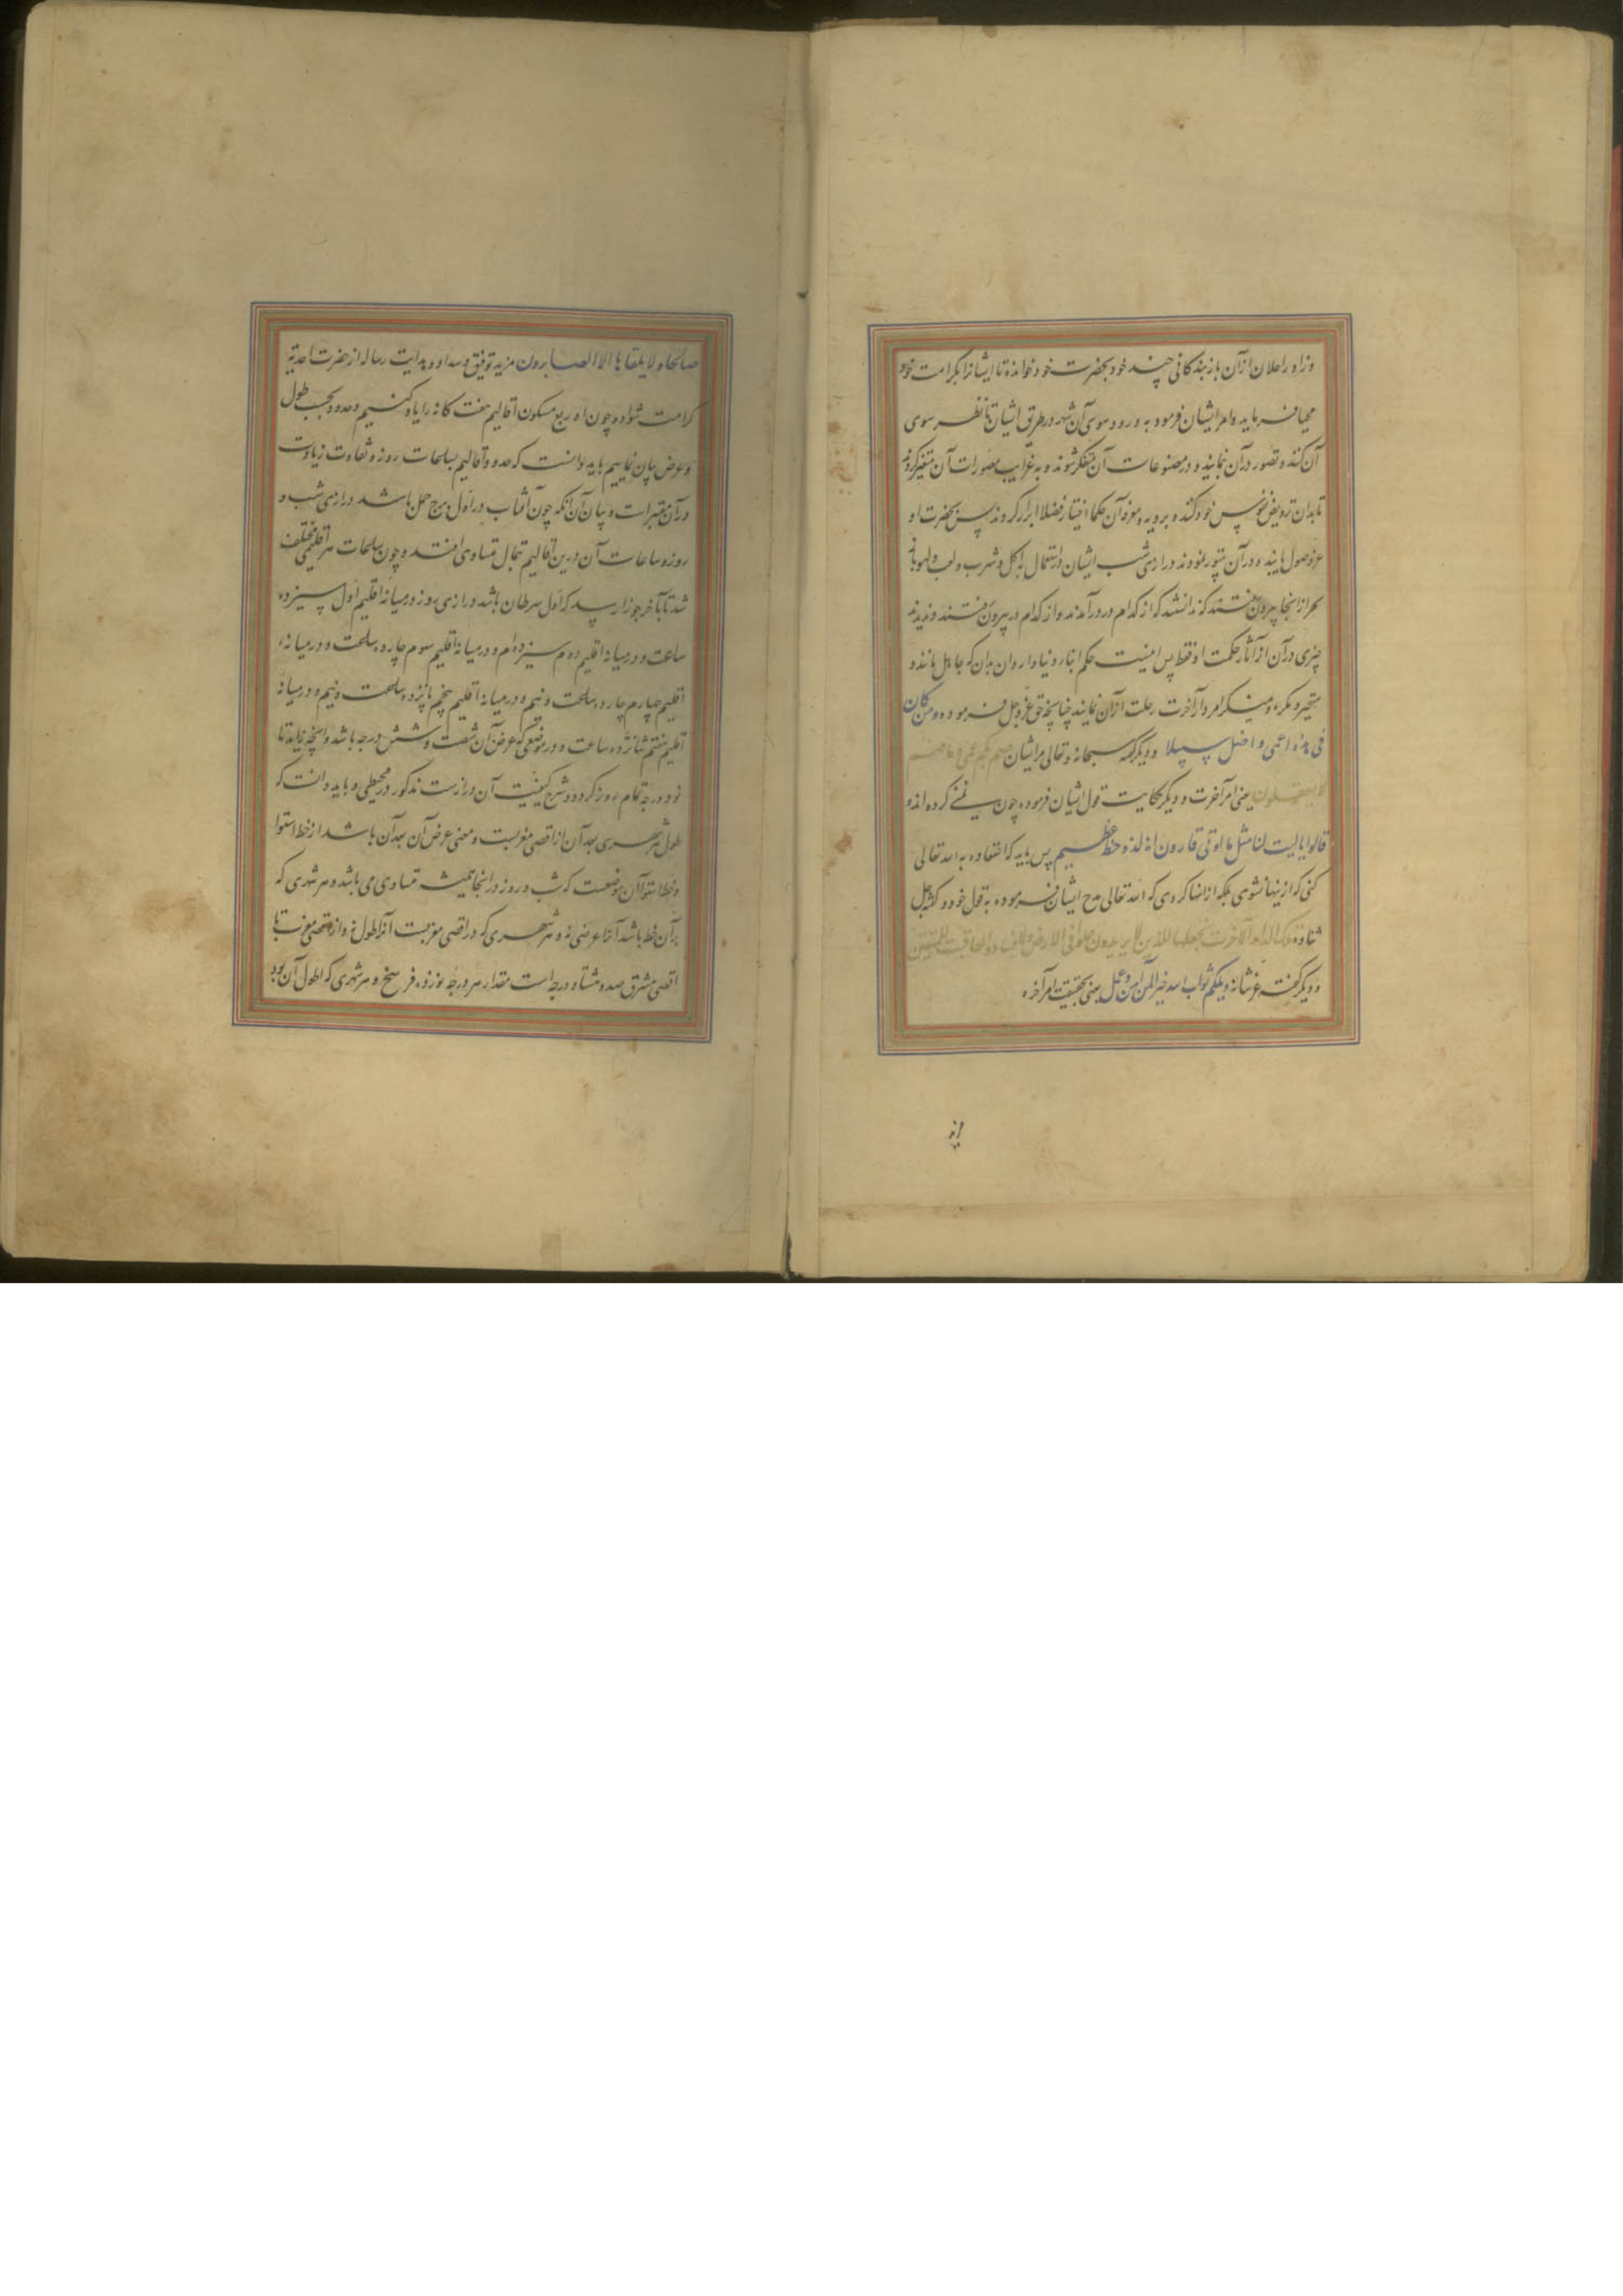 وزاو راحلان از آن باز بندگانی چند خود بحضرت خود خوانده تا ایشانرا بکرامت خود
محیا فرماید وامر ایشان فرمود به ورود سوی آن شهر در طریق ایشان تا نظر سوی
آن کنند و تصور در آن نمایند و در مصنوعات آن متفکر شوند و به غرایب مصورات آن
تا بدان نفوس خود کنند و حکما اخیار فضلا ابرار گردند پس بحضرت او
وصول یابند و در آن درازی شب ایشان در استعمال اکل و شرب و لعب و لهو تا
سحر از انجا بیرون رفتند که ندانستند که از کدام در درآمدند و از کدام در بیرون رفتند و ندیدند
چیزی در آن از آثار حکمت او فقط پس اینست حکم ابناء دنیا و اردان بدان که جاهل مانند و
متحیر و مکره و منکر امر دار آخرت رحلت از آن نمایند چنانچه حق عز و جل فرموده ومن کان
فی هذه اعمی واضل سبیلا ودیگر گفته سبحانه وتعالی مر ایشان صم بکم عمی
لا یعقلون یعنی امر آخرت ودیگر حکایت قول ایشان فرموده چون تمنی کرده اند و
قالوا یا لیت لنا مثل ما اوتی قارون انه لذو حظ عظیم پس باید که اعتقاد به الله تعالی
کنی که از ینها نشوی بلکه از انها کردی که الله تعالی مدح ایشان فرموده به قول خود و گفته جل
ثناؤه تلک الدار الآخرت نجعلها للذین لا یریدون علوا فی الارض ولا فسادا والعاقبت للمتقین
ودیگر گفته عز شانه ویلکم ثواب الله خیر لمن امن وعمل یعنی بحقیقت امر آخره
صالحا ولا یلقاها الا الصابرون مزید توفیق وسداد وهدایت رساله از حضرت احدیه
کرامت شواد و چون اه ربع مسکون اقالیم هفت کانه را یاد کنیم وحدود بحسب طول
وعرض بیان نماییم باید دانست که حدود اقالیم بساعات روز و تفاوت زیادت
در آن معتبر است و بیان آن آنکه چون آفتاب در اول برج حمل باشد درازی شب و
روز و ساعات آن درین اقالیم بتمال متساوی افتد و چون ساعات هر اقلیمی مختلف
شد تا بآخر جوزا رسد که اول سرطان باشد درازی روز در میانه اقلیم اول سیزده
ساعت و در میانه اقلیم دوم سیزده ام و در میانه اقلیم سوم چارده ساعت و در میانه
اقلیم چهارم چارده ساعت و نیم و در میانه اقلیم پنجم پانزده ساعت و نیم و در میانه
اقلیم هفتم شانزده ساعت و در موضعی که عرض آن شصت و شش درجه باشد وانچه زاید تا
نود درجه تمام روز کردد و شرح کیفیت آن دراز ست مذکور در محیطی و باید دانست که
طول هر شهری بعد آن از اقصی مغربست و معنی عرض آن بعد آن باشد از خط استوا
و خط استوا آن موضعست که شب و روز در انجا همیشه متساوی می باشد و هر شهری که
بر آن خط باشد آنرا عرضی نه و هر شهری که در اقصی مغربست آنرا طول نه و از اقصی مغرب تا
اقصی مشرق صد و هشتاد درجه است مقدار هر درجه نوزده فرسخ و هر شهری که طول آن بود